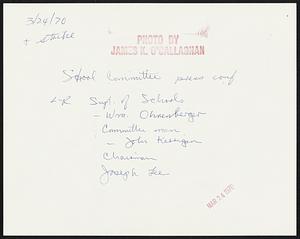 3/24/70
+ strike
PHOTO BY
JAMES K. O'CALLAGHAN
School Committee press conf
L-R Supt. of Schools
- Wm. Ohrenberger
Committee man
- John Kerrigan
Chairman
Joseph Lee
MAR 24 1970